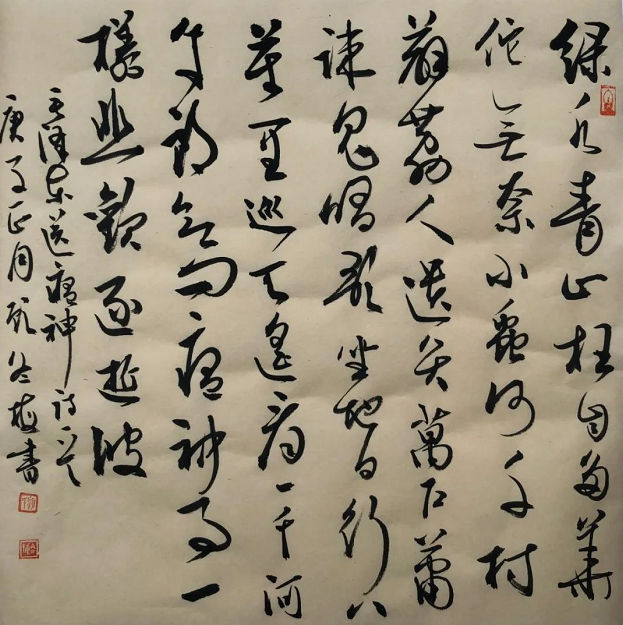 绿水青山枉自多華
佗无奈小蟲何千村
薜荔人遗矢萬户蕭
疎鬼唱歌坐地日行八
萬里巡天遥看一千河
牛郎欲问瘟神事一
樣悲歡逐逝波
毛泽东送瘟神诗一首
庚子正月冬梅書